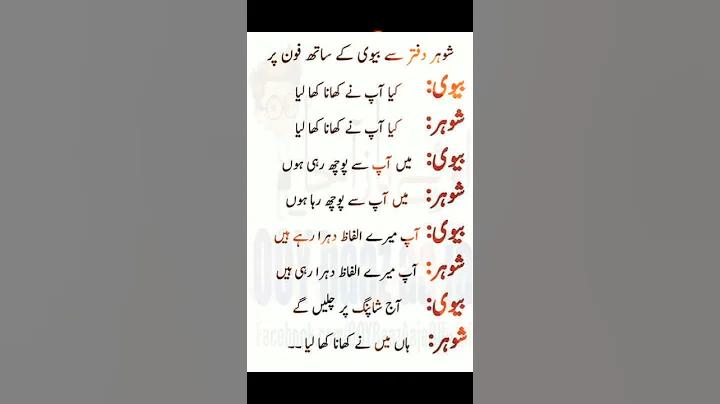 شوہر دفتر سے بیوی کے ساتھ فون پر
بیوی: کیا آپ نے کھانا کھا لیا
شوہر: کیا آپ نے کھانا کھا لیا
بیوی: میں آپ سے پوچھ رہی ہوں
شوہر: میں آپ سے پوچھ رہا ہوں
بیوی: آپ میرے الفاظ دہرا رہے ہیں
شوہر: آپ میرے الفاظ دہرا رہی ہیں
بیوی: آج شاپنگ پر چلیں گے
شوہر: ہاں میں نے کھانا کھا لیا ۔۔